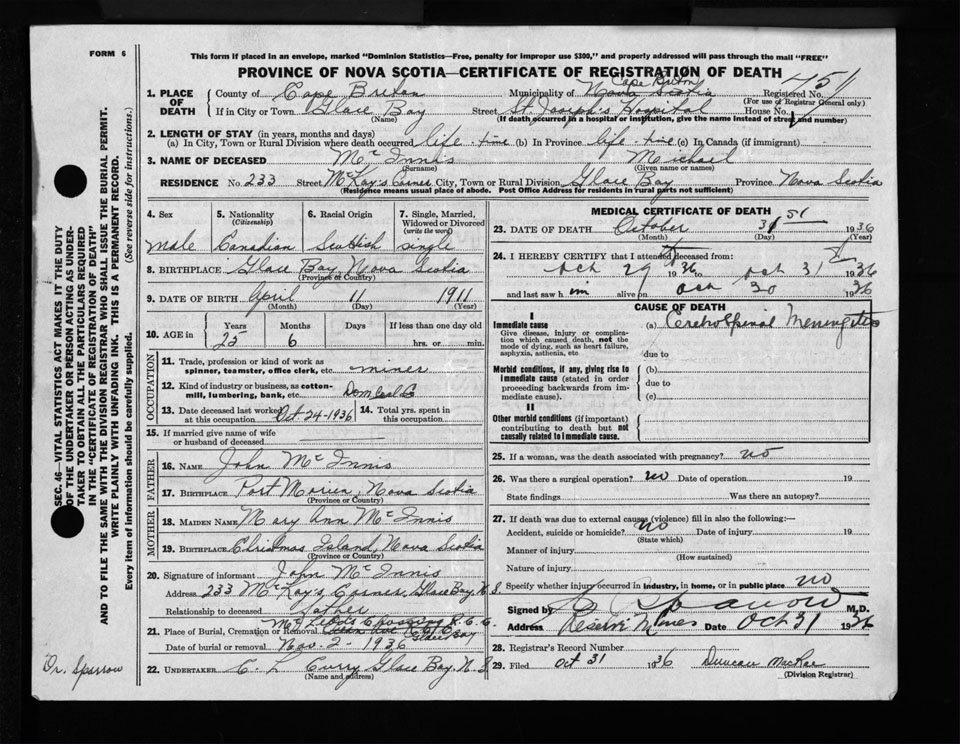 FORM 6
This form if placed in an envelope, marked "Dominion Statistics—Free, penalty for improper use $300," and properly addressed will pass through the mail "FREE"
PROVINCE OF NOVA SCOTIA—CERTIFICATE OF REGISTRATION OF DEATH
1. PLACE OF DEATH
County of Cape Breton Municipality of Nova Scotia Cape Breton Registered No. 451
(For use of Registrar General only)
If in City or Town Glace Bay Street St. Joseph's Hospital House No.
(Name) (If death occurred in a hospital or institution, give the name instead of street and number)
2. LENGTH OF STAY (in years, months and days)
(a) In City, Town or Rural Division where death occurred life-time (b) In Province life-time (c) In Canada (if immigrant)
3. NAME OF DECEASED McInnis Michael
(Surname) (Given name or names)
RESIDENCE No. 233 Street McKay's Corner City, Town or Rural Division Glace Bay Province Nova Scotia
(Residence means usual place of abode. Post Office Address for residents in rural parts not sufficient)
4. Sex male
5. Nationality (Citizenship) Canadian
6. Racial Origin Scottish
7. Single, Married, Widowed or Divorced (write the word) single
8. BIRTHPLACE Glace Bay, Nova Scotia
(Province or Country)
9. DATE OF BIRTH April 11 1911
(Month) (Day) (Year)
10. AGE in Years 25 Months 6 Days If less than one day old hrs. or min.
OCCUPATION
11. Trade, profession or kind of work as spinner, teamster, office clerk, etc miner
12. Kind of industry or business, as cotton-mill, lumbering, bank, etc. Dom Coal Co
13. Date deceased last worked at this occupation Oct 24-1936
14. Total yrs. spent in this occupation
15. If married give name of wife or husband of deceased
FATHER
16. NAME John McInnis
17. BIRTHPLACE Port Morien, Nova Scotia
(Province or Country)
MOTHER
18. MAIDEN NAME Mary Ann McInnis
19. BIRTHPLACE Christmas Island, Nova Scotia
(Province or Country)
20. Signature of informant John McInnis
Address 233 McKay's Corner, Glace Bay N.S.
Relationship to deceased father
21. Place of Burial, Cremation or Removal
Date of burial or removal Nov. 2 1936
22. UNDERTAKER C. L. Curry Glace Bay. N.S
(Name and address)
MEDICAL CERTIFICATE OF DEATH
23. DATE OF DEATH October 31st 1936
(Month) (Day) (Year)
24. I HEREBY CERTIFY that I attended deceased from:
Oct 29 1936 to Oct 31 1936
and last saw him alive on Oct 30 1936
CAUSE OF DEATH
I
Immediate cause
Give disease, injury or complication which caused death, not the mode of dying, such as heart failure, asphyxia, asthenia, etc
(a) Cerebrospinal Meningitis
due to
Morbid conditions, if any, giving rise to immediate cause (stated in order proceeding backwards from immediate cause).
(b)
due to
(c)
II
Other morbid conditions (if important) contributing to death but not causally related to immediate cause.
25. If a woman, was the death associated with pregnancy? no
26. Was there a surgical operation? no Date of operation 19
State findings Was there an autopsy?
27. If death was due to external causes (violence) fill in also the following:—
Accident, suicide or homicide? no Date of injury 19
(State which)
Manner of injury
(How sustained)
Nature of injury
Specify whether injury occurred in industry, in home, or in public place no
Signed by Sparrow M.D.
Address Reserve Mines Date Oct 31 1936
28. Registrar's Record Number
29. Filed Oct 31 1936 Duncan MacRae
(Division Registrar)
SEC. 46—VITAL STATISTICS ACT MAKES IT THE DUTY
OF THE UNDERTAKER OR PERSON ACTING AS UNDERTAKER TO OBTAIN ALL THE PARTICULARS REQUIRED
IN THE "CERTIFICATE OF REGISTRATION OF DEATH"
AND TO FILE THE SAME WITH THE DIVISION REGISTRAR WHO SHALL ISSUE THE BURIAL PERMIT.
WRITE PLAINLY WITH UNFADING INK. THIS IS A PERMANENT RECORD.
Every item of information should be carefully supplied. (See reverse side for instructions.)
Dr. Sparrow